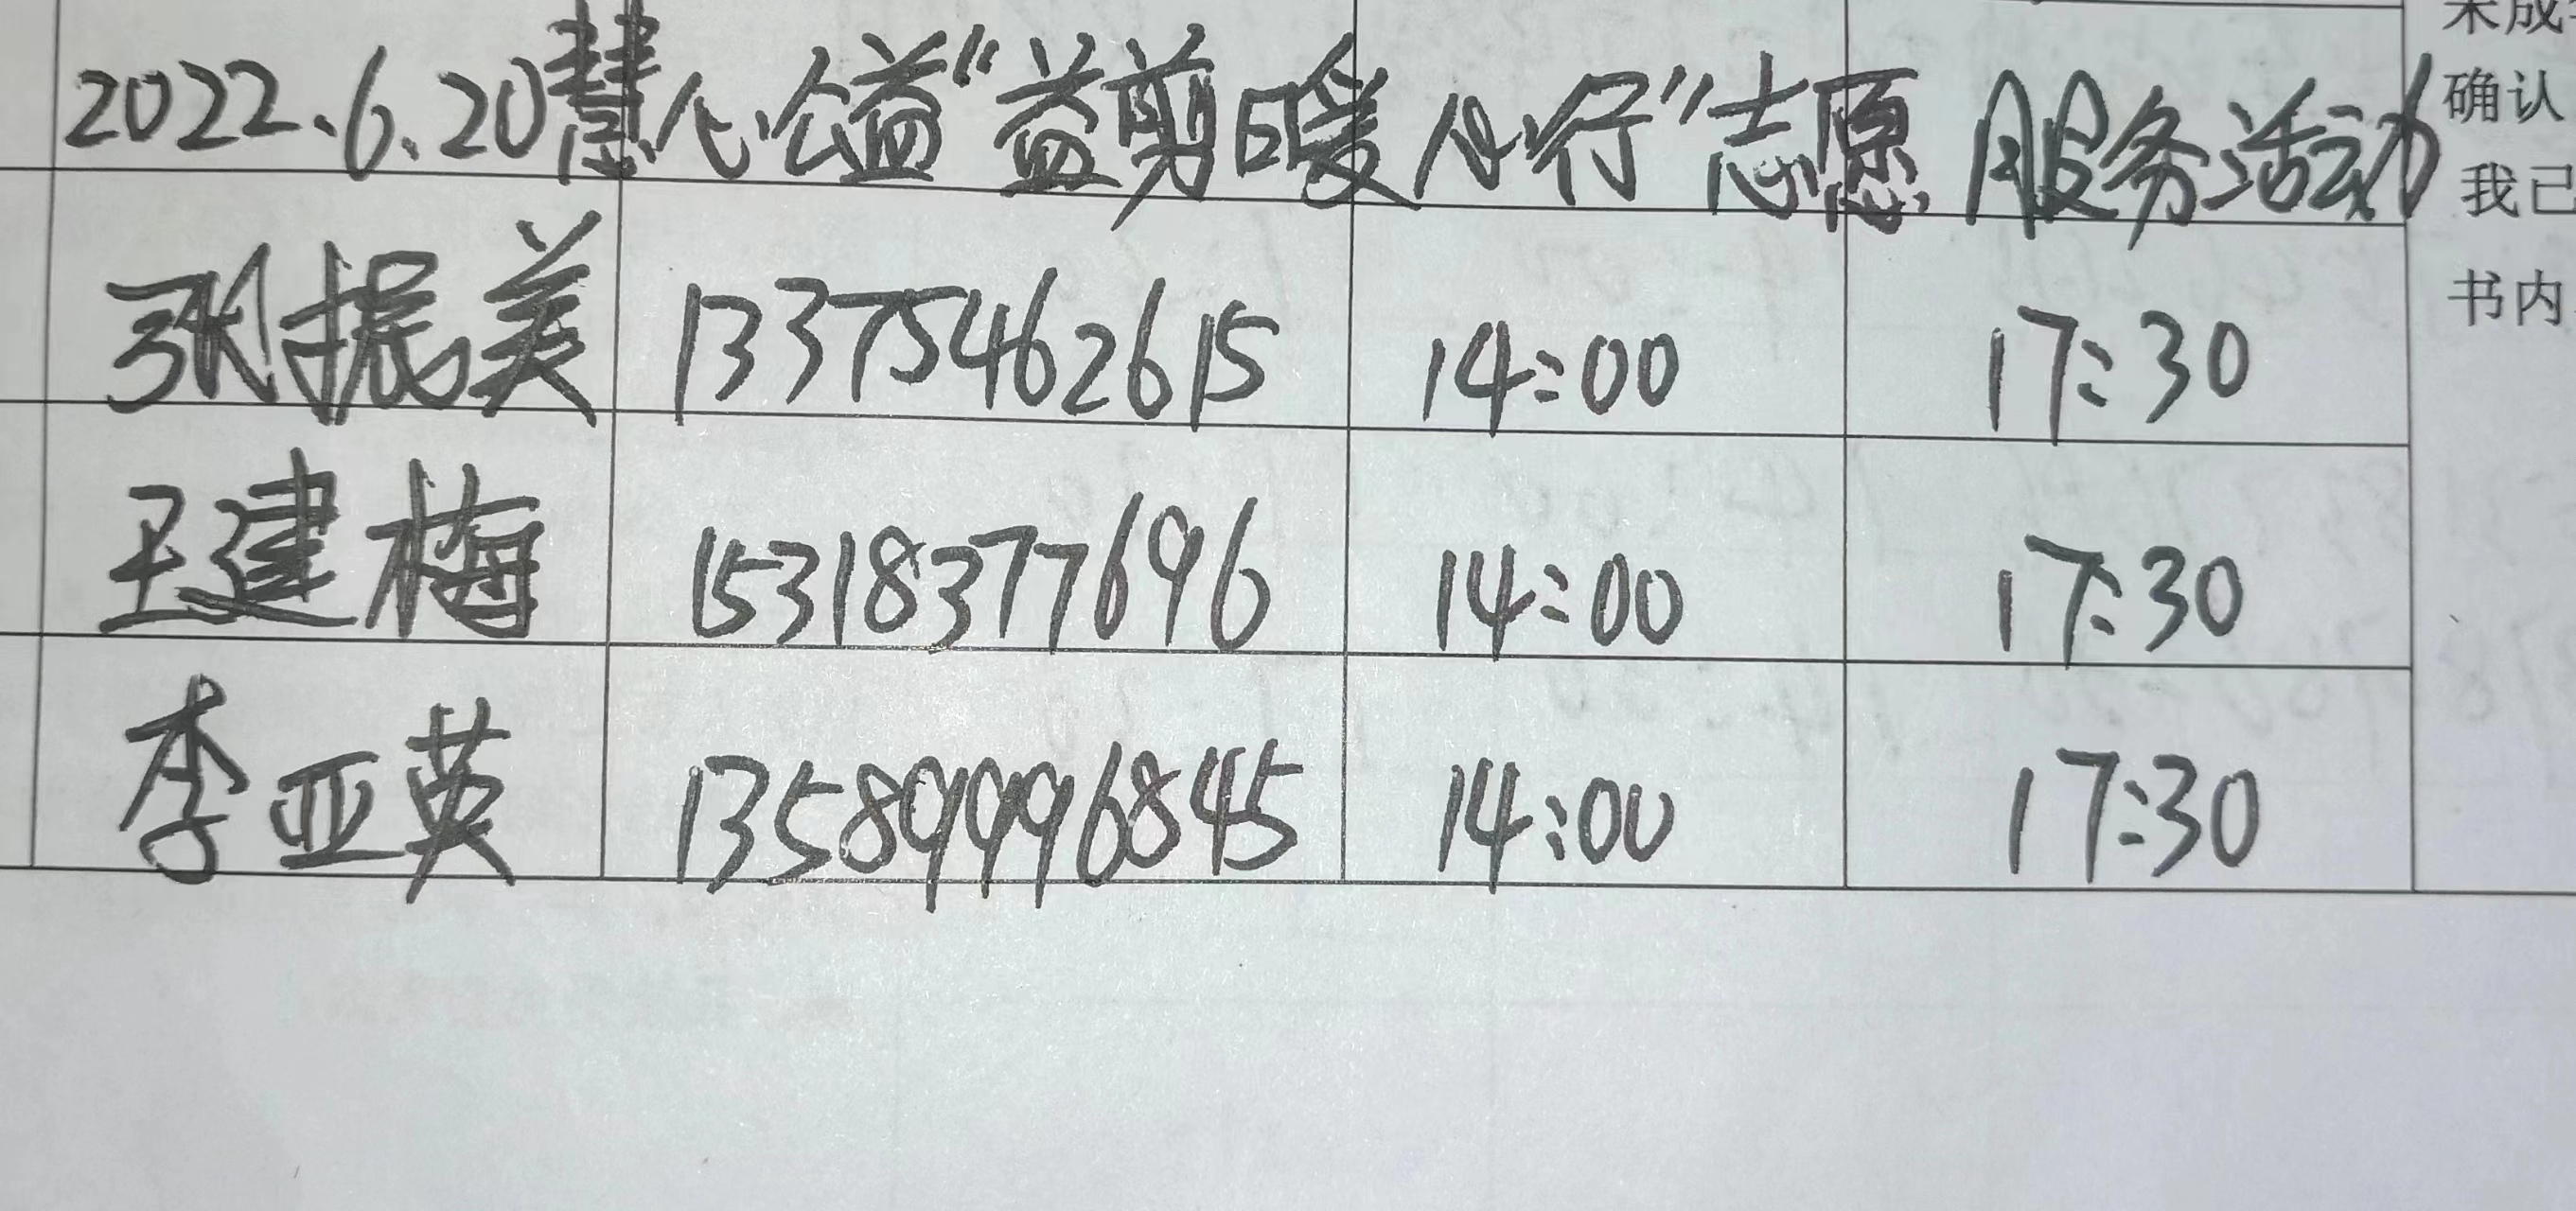 2022.6.20慧心公益“益剪暖心行”志愿服务活动
张振美 13375462615 14:00 17:30
王建梅 15318377696 14:00 17:30
李亚英 13589996845 14:00 17:30
未成
确认
我已
书内